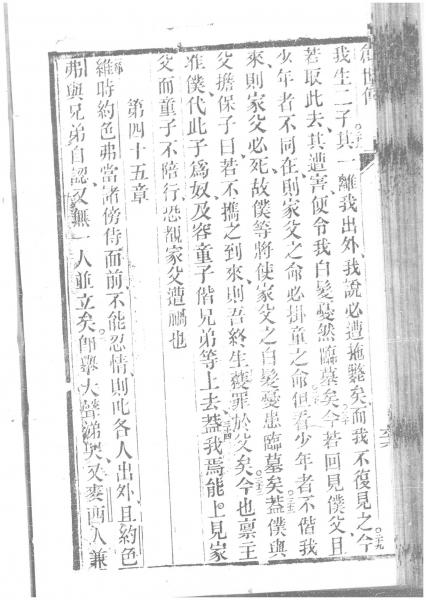 創世傳
我生二子其一離我出外、我說必遭掩斃矣而我不復見之今
若取此去其遭害、便令我白髮憂然臨墓矣今若回見僕父且
少年者不同在、則家父之命必掛童之命但看少年者不偕我
來、則家父必死、故僕等將使家父之白髮憂患臨墓矣蓋僕與
父擔保子曰若不攜之到來、則吾終生獲罪於父矣今也禀王
准僕代此子爲奴及容童子偕兄弟等上去蓋我焉能上見家
父而童子不陪行恐覩家父遭禍也
第四十五章
維時約色弗當諸傍侍面前不能忍情、則叱各人出外、且約色
弗與兄弟自認、又無一人並立矣即舉大聲涕哭又麥西人兼